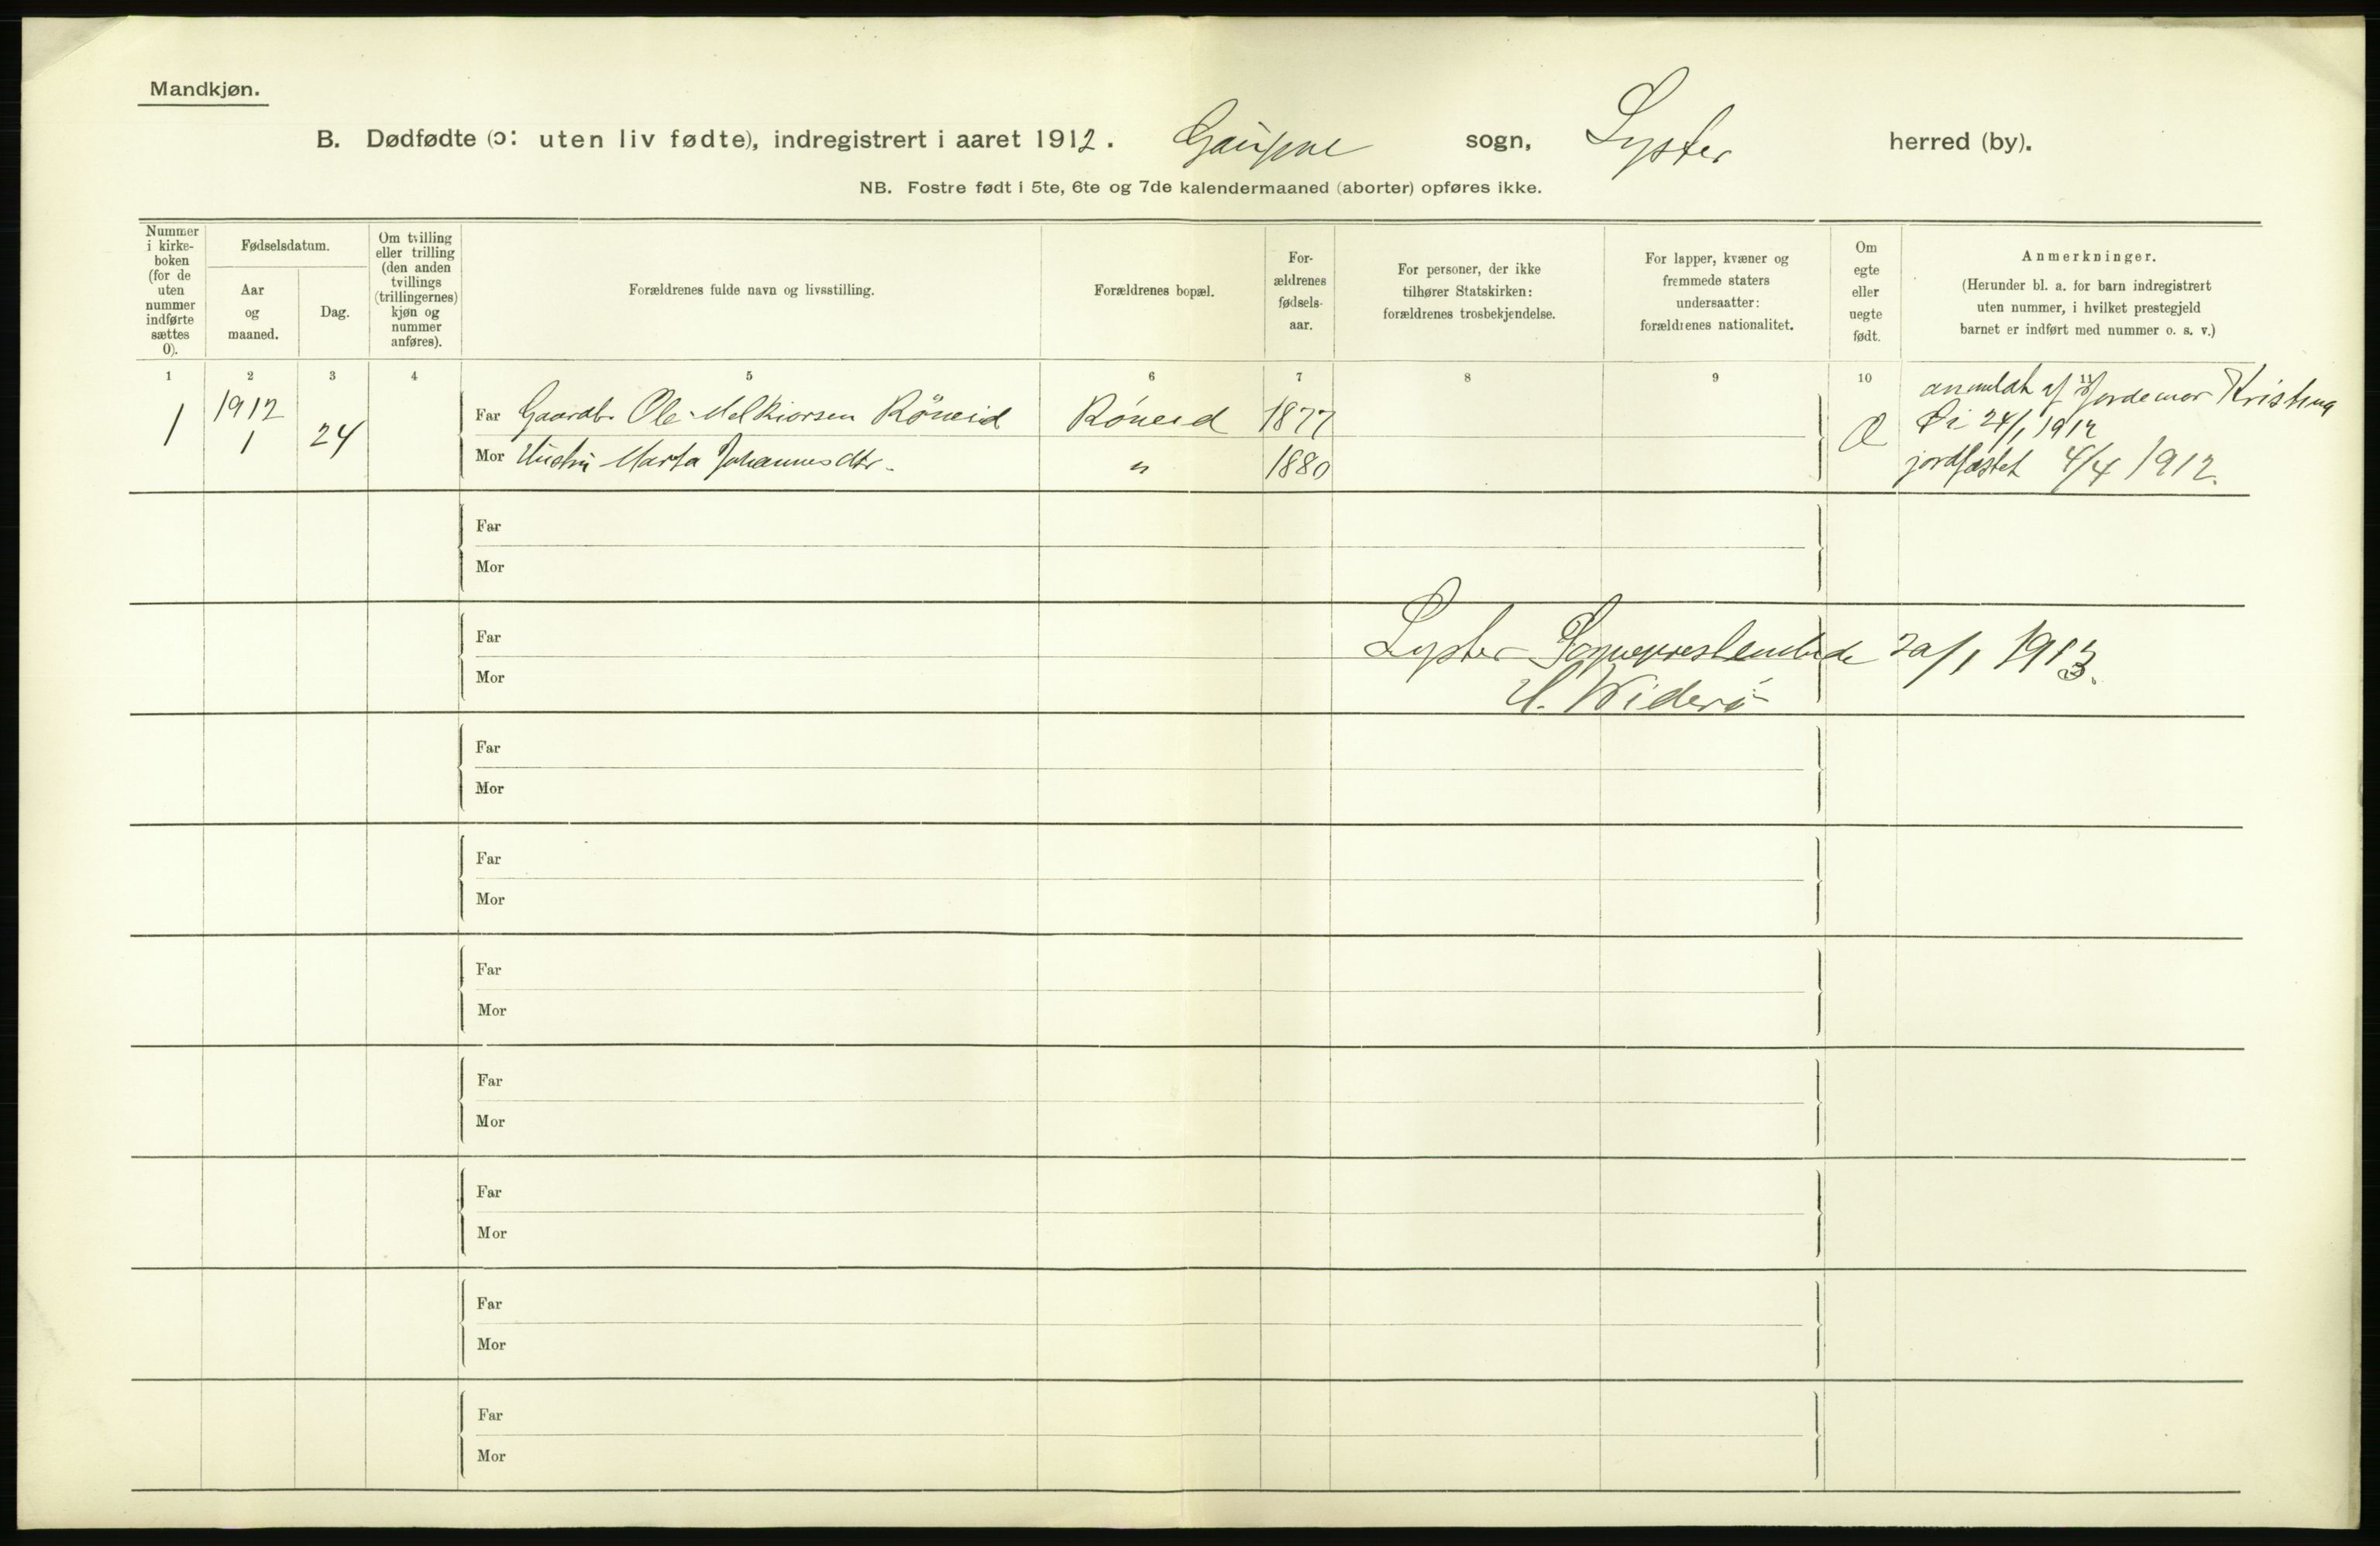 Mandkjøn.
B. Dødfødte (ɔ: uten liv fødte), indregistrert i aaret 1912. Gaupne sogn, Lyster herred (by).
NB. Fostre født i 5te, 6te og 7de kalendermaaned (aborter) opføres ikke.
Nummer
i kirke-
boken
(for de
uten
nummer
indførte
sættes
0).
Fødselsdatum.
Aar
og
maaned.
Dag.
Om tvilling
eller trilling
(den anden
tvillings
(trillingernes)
kjøn og
nummer
anføres).
Forældrenes fulde navn og livsstilling.
Forældrenes bopæl.
For-
ældrenes
fødsels-
aar.
For personer, der ikke
tilhører Statskirken:
forældrenes trosbekjendelse.
For lapper, kvæner og
fremmede staters
undersaatter:
forældrenes nationalitet.
Om
egte
eller
uegte
født.
Anmerkninger.
(Herunder bl. a. for barn indregistrert
uten nummer, i hvilket prestegjeld
barnet er indført med nummer o. s. v.)
1 2 3 4 5 6 7 8 9 10 11
1 1912 1 24
Far Gaardb. Ole Melkiorsen Röneid Röneid 1877
Mor Hustru Marta Johannesdtr. " 1880
Æ
anmeldt af Jordemor Kristina
Øi 24/1 1912
jordfæstet 4/4 1912.
Far
Mor
Far
Mor
Lyster Sogneprestembede 20/1 1913.
H. Widerö
Far
Mor
Far
Mor
Far
Mor
Far
Mor
Far
Mor
Far
Mor
Far
Mor